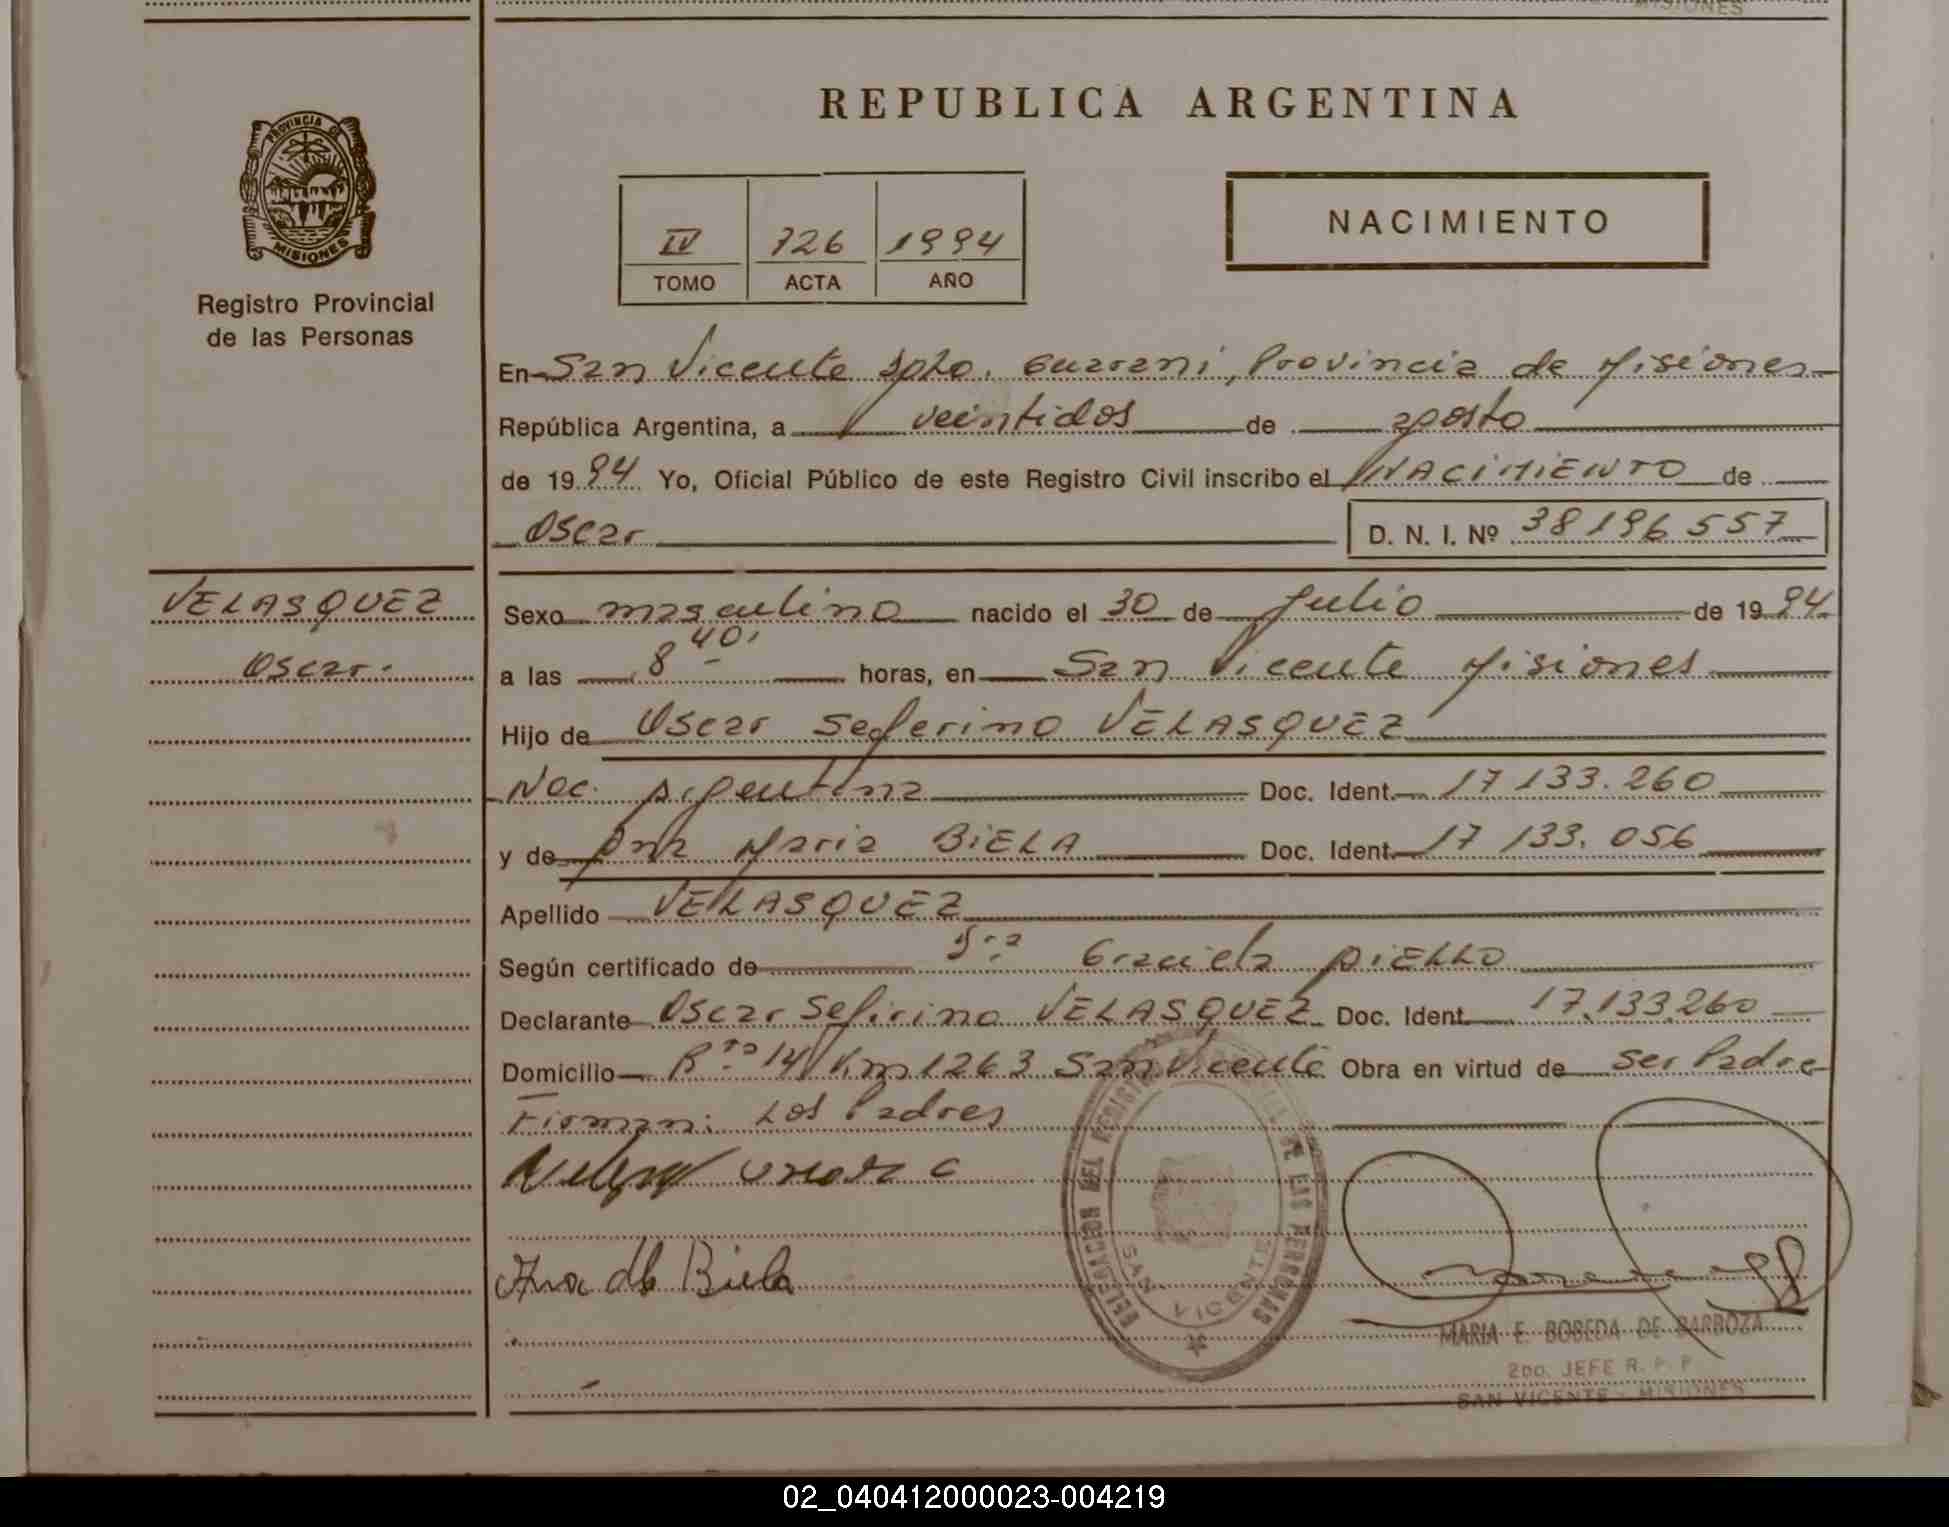 MISIONES
REPUBLICA ARGENTINA
PROVINCIA DE
MISIONES
Registro Provincial
de las Personas
NACIMIENTO
IV 726 1994
TOMO ACTA AÑO
En San Vicente Dpto. Guarani, Provincia de Misiones
República Argentina, a veintidos de agosto
de 1994 Yo, Oficial Público de este Registro Civil inscribo el NACIMIENTO de
Oscar D. N. I. Nº 38196557
VELASQUEZ
Oscar.
Sexo masculino nacido el 30 de Julio de 1994
a las 8 40' horas, en San Vicente Misiones
Hijo de Oscar Seferino VELASQUEZ
Nac. Argentina Doc. Ident. 17 133.260
y de Ana Maria BiELA Doc. Ident. 17 133.056
Apellido VELASQUEZ
Según certificado de Dra Graciela AiELLO
Declarante Oscar Sefirino VELASQUEZ Doc. Ident. 17.133.260
Domicilio Rta 14 Km 1263 San Vicente Obra en virtud de ser Padre
Firman: Los Padres
Ana de Biela
DELEGACION DEL REGISTRO DE LAS PERSONAS
SAN VICENTE
MARIA E. BOBEDA DE BARBOZA
2DO. JEFE R. P. P.
SAN VICENTE - MISIONES
02_040412000023-004219